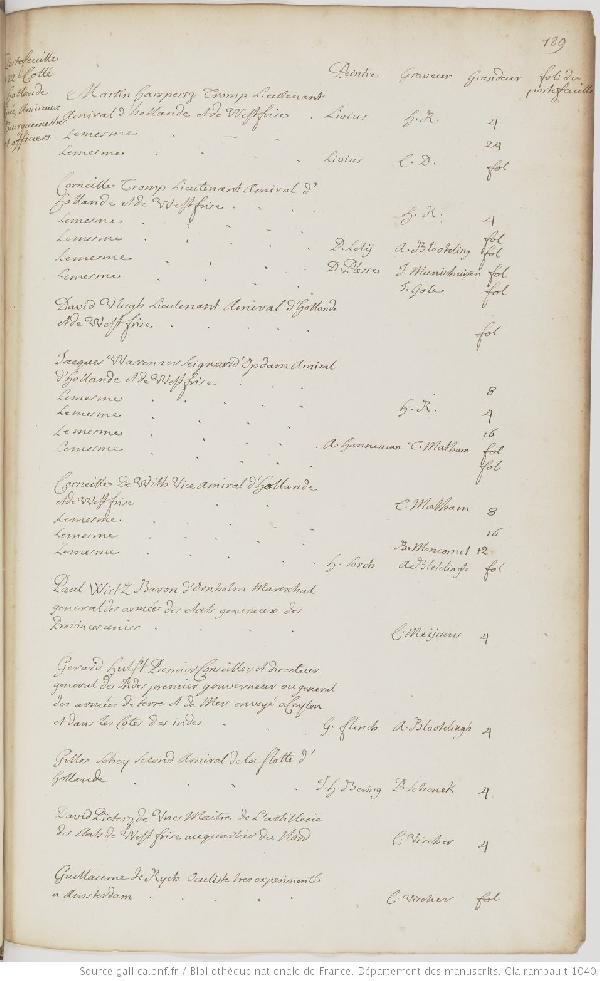 189
Portefeuille
Cotté
hollande
Amiraux
Bourguemestres
et officiers
Peintre Graveur Grandeur fol. du
portefeuille
Martin harpers Tromp Lieutenant
Amiral d'hollande et de Westfrise . Livius H. R. 4
Lemesme 24
Lemesme Livius C. D. fol
Corneille Tromp Lieutenant Amiral d'
hollande et de Westfrise . H. R. 4
Lemesme fol
Lemesme D. Lely A. Blooteling fol
Lemesme D. Plesse J. Munichuisen fol
Lemesme J. Gole fol
David Vlugh Lieutenant Amiral d'hollande
et de West frise fol
Jacques Wassenaer seigneur d'Opdam Amiral
d'hollande et de West frise 8
Lemesme H. R. 4
Lemesme 16
Lemesme A. hanneman T. Matham fol
Lemesme fol
Corneille de With Vice Amiral d'hollande
et de West frise C. Matham 8
Lemesme 16
Lemesme B. Moncornet 12
Lemesme H. Sorch A. Bloteling fol
Paul Wirtz Baron d'Ornholm Mareschal
general des armées des estats generaux des
Provinces unies C. Meijsens 4
Gerard hulft Premier Conseiller et directeur
general des Indes premier gouverneur ou general
des armées de terre et de Mer envoyé a Ceylon
et dans les Costes des indes G. flinck A. Blootelingh 4
Gilles Schey second Amiral de la flotte d'
hollande . J. H. Bening P. Schenck 4
David Pietersz de Vries Maitre de l'artillerie
des estats de West frise au quartier du Nord C. Vischer 4
Guillaume de Ryck Oculiste tres experimenté
a Amsterdam C. Vischer fol
Source gallica.bnf.fr / Bibliothèque nationale de France. Département des manuscrits. Clairambault 1040